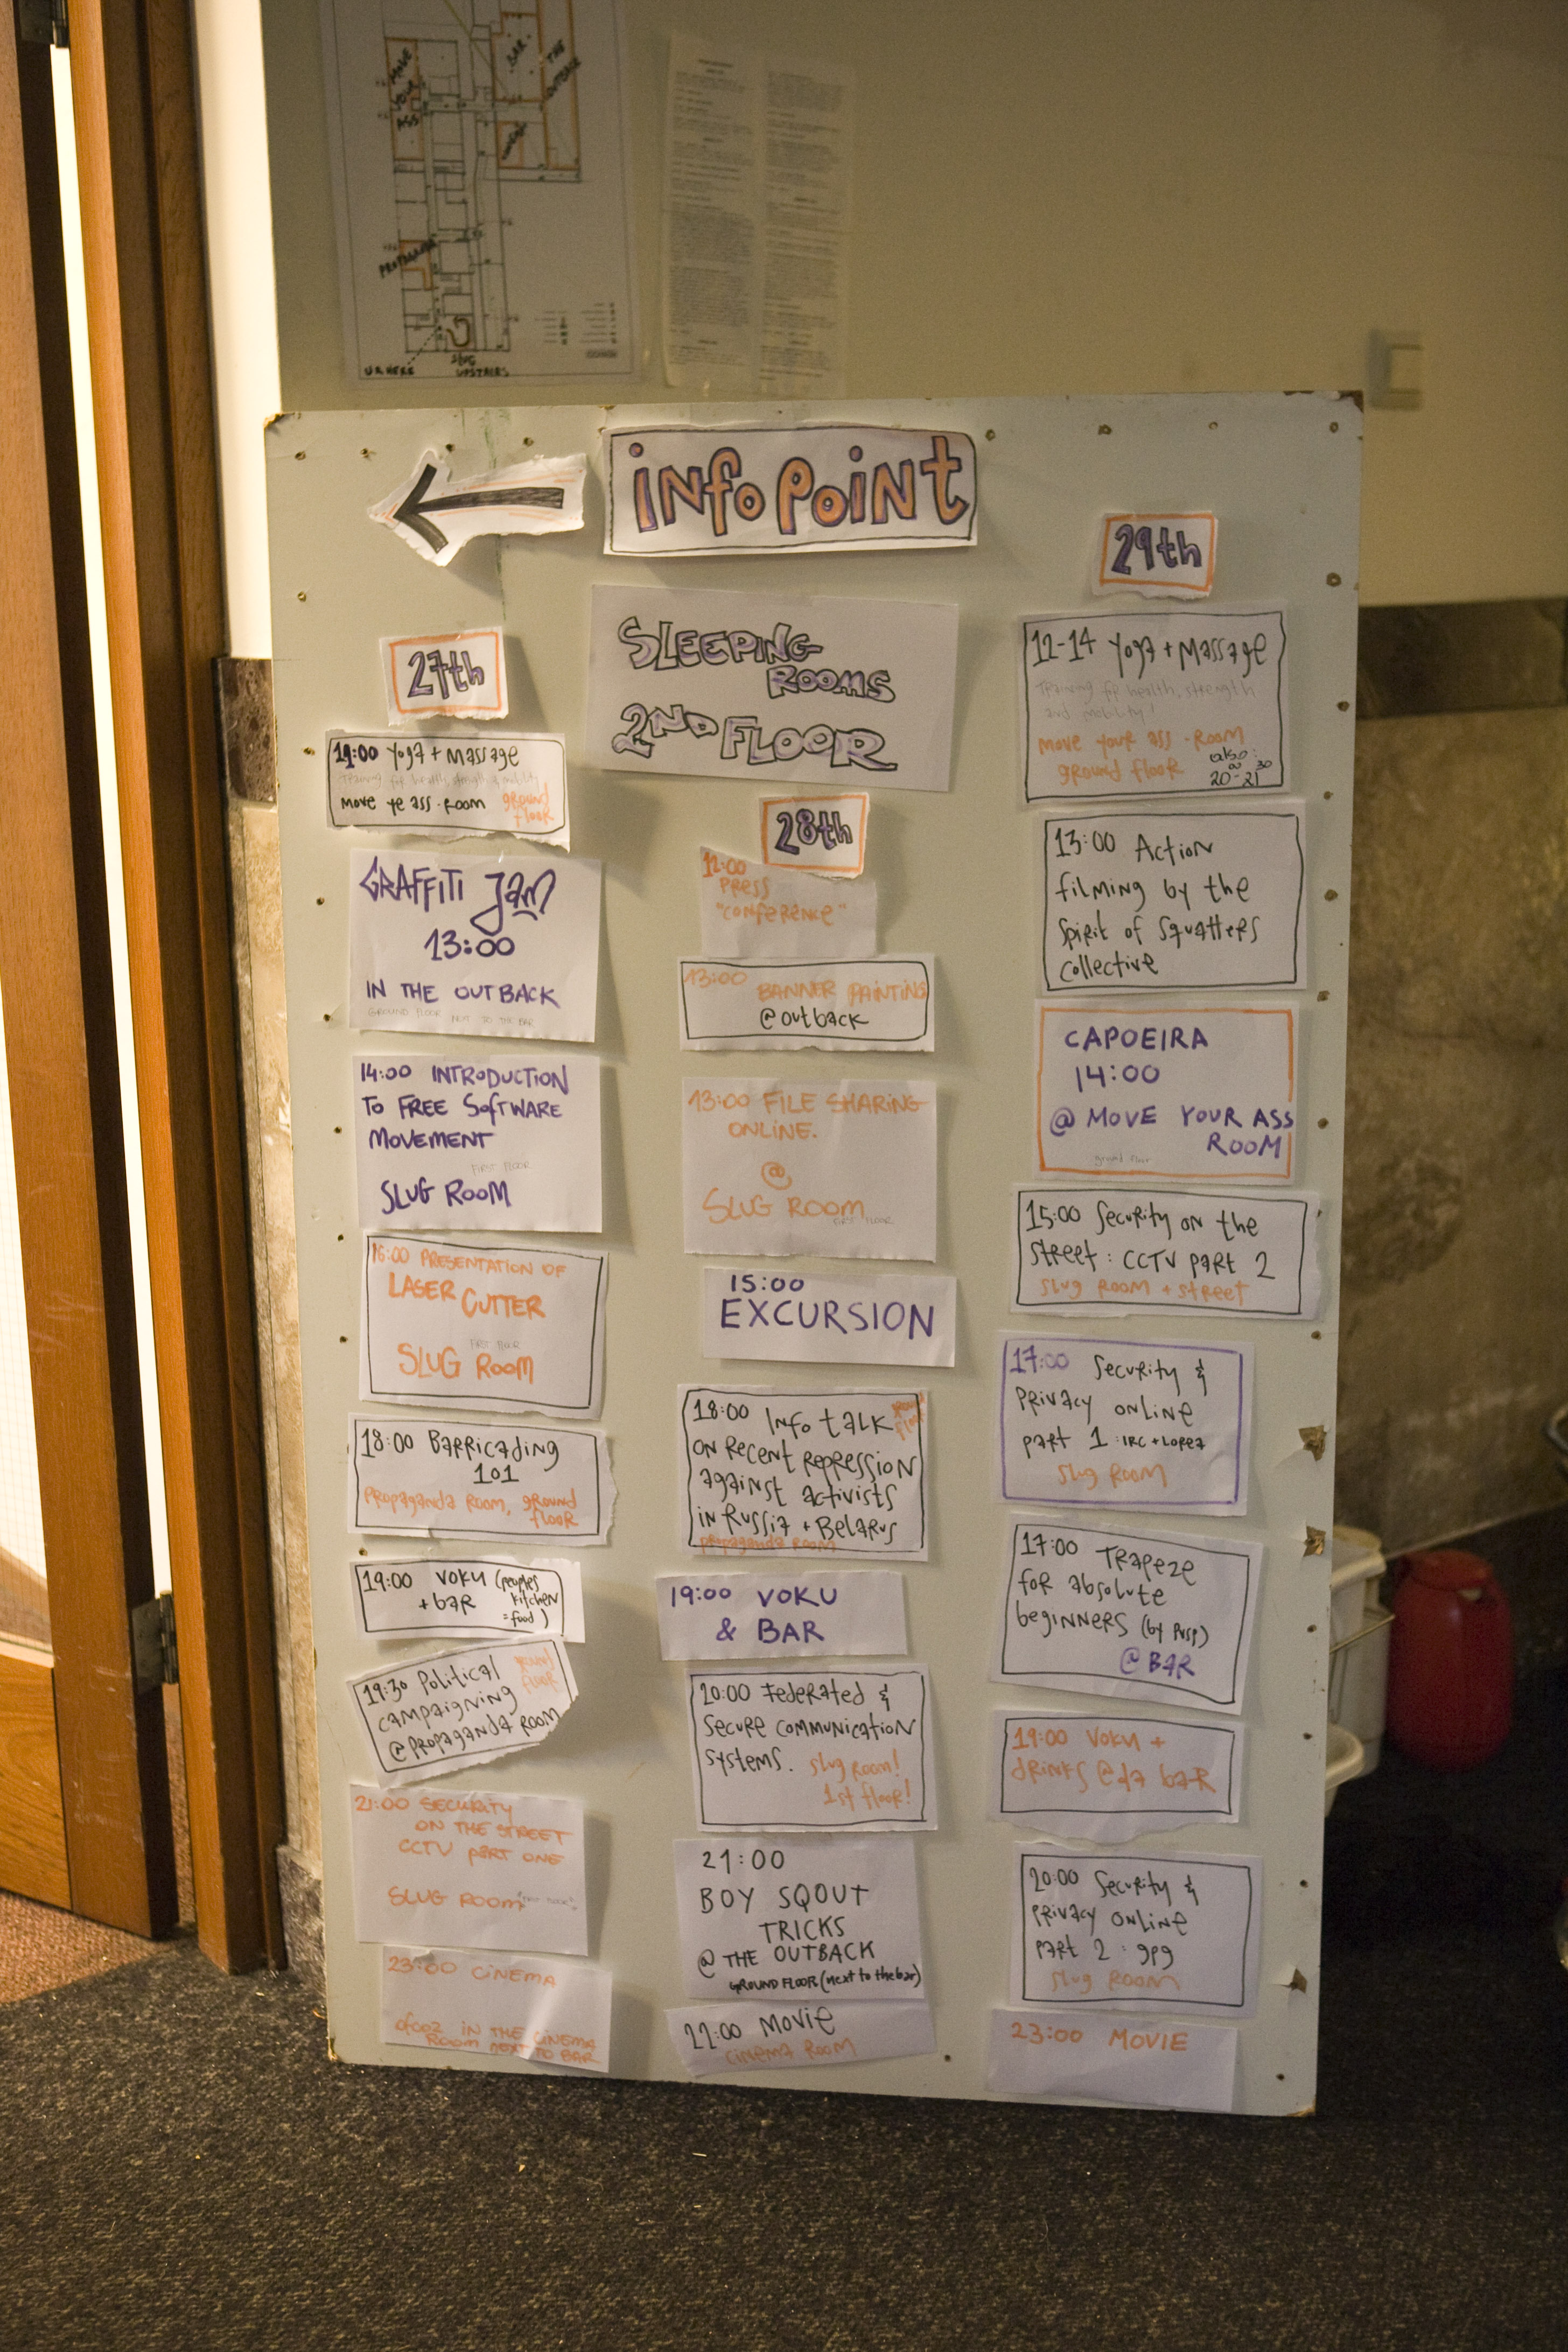 MOVE
YOUR
ASS
BAR
THE
OUTBACK
U R HERE
SLUG
UPSTAIRS
INFO POINT
SLEEPING
ROOMS
2ND FLOOR
27th
Yoga + Massage
Move ye ass - Room
ground
floor
GRAFFITI Jam
13:00
IN THE OUTBACK
GROUND FLOOR NEXT TO THE BAR
14:00 INTRODUCTION
TO FREE SOFTWARE
MOVEMENT
FIRST FLOOR
SLUG ROOM
16:00 PRESENTATION OF
LASER CUTTER
FIRST FLOOR
SLUG ROOM
18:00 Barricading
101
Propaganda Room, ground
floor
19:00 VOKU (peoples
+ bar kitchen
= food)
19:30 Political
campaigning
@ propaganda Room
ground
floor
21:00 SECURITY
ON THE STREET
CCTV PART ONE
SLUG ROOM
23:00 CINEMA
IN THE CINEMA
ROOM NEXT TO BAR
28th
12:00
PRESS
"CONFERENCE"
13:00 BANNER PAINTING
@ outback
13:00 FILE SHARING
ONLINE.
@
SLUG ROOM
FIRST FLOOR
15:00
EXCURSION
18:00 Info talk
ground
floor
on recent repression
against activists
in Russia + Belarus
propaganda room
19:00 VOKU
& BAR
20:00 Federated &
secure communication
systems. slug room!
1st floor!
21:00
BOY SQOUT
TRICKS
@ THE OUTBACK
GROUND FLOOR (next to the bar)
22:00 Movie
Cinema Room
29th
12-14 Yoga + Massage
Training for health, strength
and mobility!
move your ass - Room
ground floor
also:
20-21 30
13:00 Action
filming by the
spirit of squatters
collective
CAPOEIRA
14:00
@ MOVE YOUR ASS
ROOM
ground floor
15:00 Security on the
street: CCTV part 2
slug room + street
17:00 Security &
privacy online
part 1: IRC + Lorea
slug room
17:00 Trapeze
for absolute
beginners
@ BAR
19:00 VOKU +
drinks @ da bar
20:00 Security &
privacy online
part 2: gpg
slug room
23:00 MOVIE